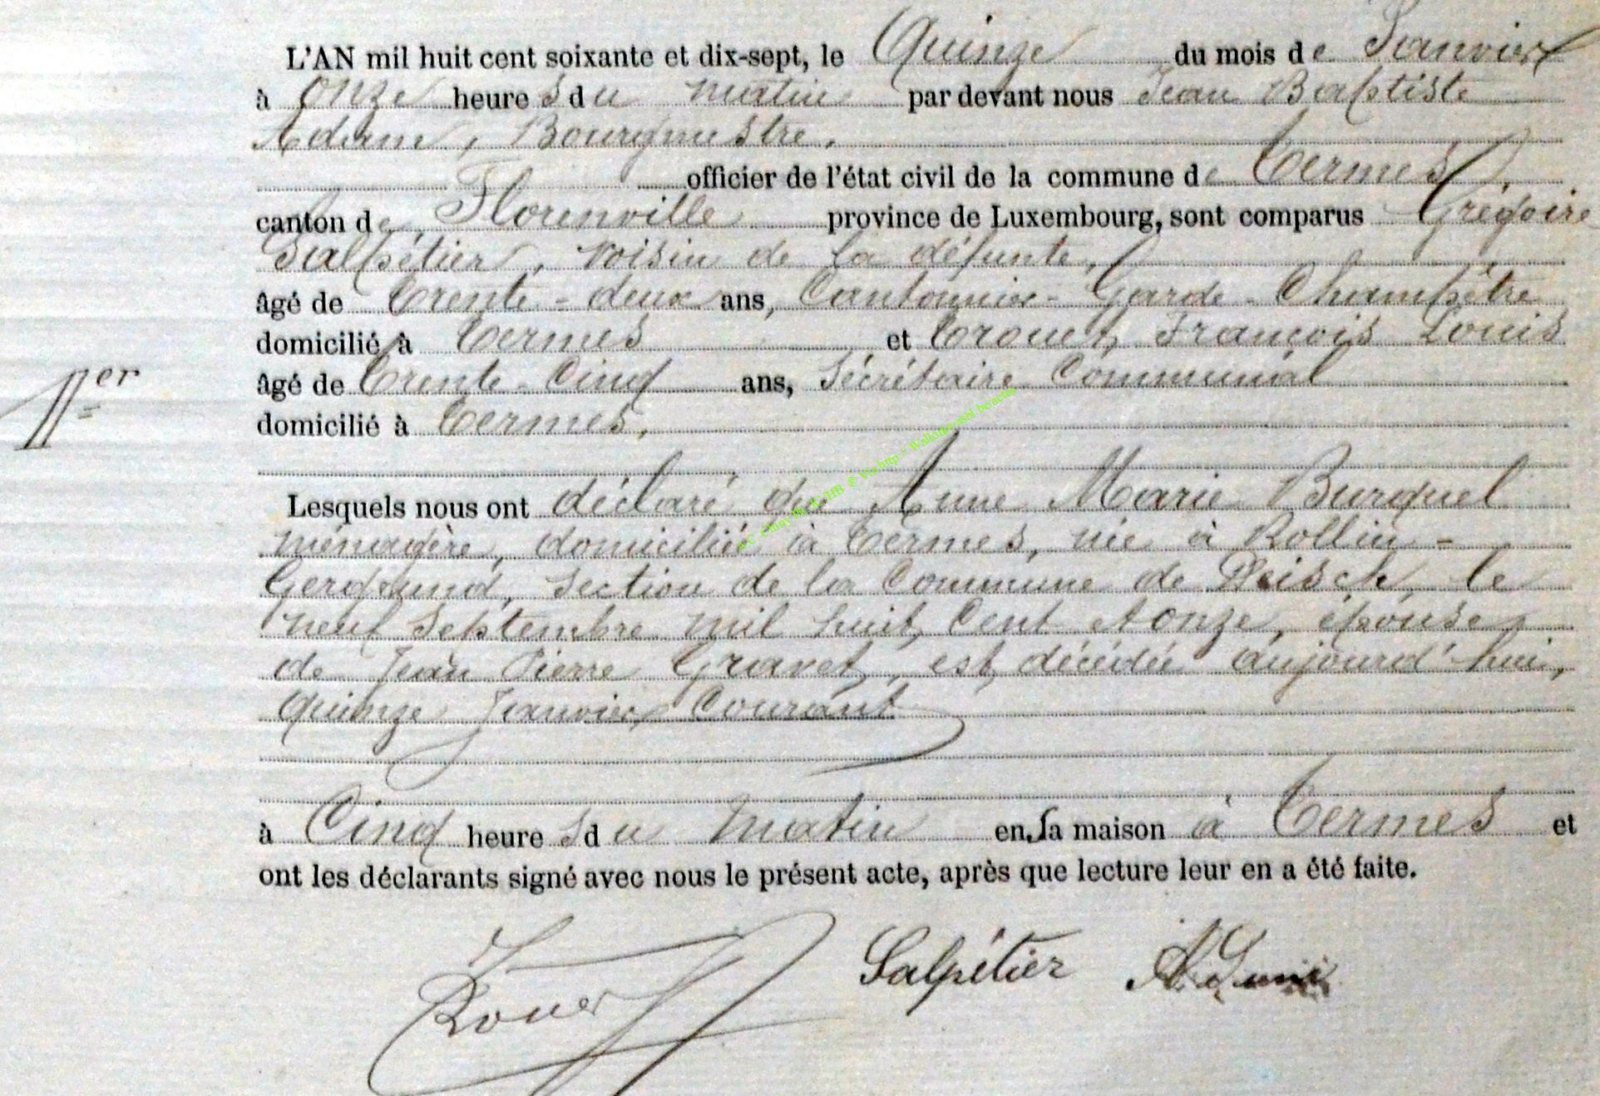 L'AN mil huit cent soixante et dix-sept, le Quinze du mois de Janvier
à onze heures du matin par devant nous Jean Baptiste
Adam, Bourgmestre,
officier de l'état civil de la commune de Termes,
canton de Florenville province de Luxembourg, sont comparus Grégoire
Salpétier, voisin de la défunte,
âgé de trente-deux ans, Cantonnier-Garde-Champêtre
domicilié à Termes et Trouet, François Louis
1er
âgé de trente-cinq ans, Sécrétaire Communal
domicilié à Termes,
Lesquels nous ont déclaré que Anne Marie Burquel
ménagère, domiciliée à Termes, née à Rollin-
Gergrund, section de la Commune de Eisch, le
neuf Septembre mil huit cent et onze, épouse
de Jean Pierre Gravet, est décédée aujourd'hui,
quinze Janvier courant
à Cinq heures du matin en sa maison à Termes et
ont les déclarants signé avec nous le présent acte, après que lecture leur en a été faite.
Salpétier Adam